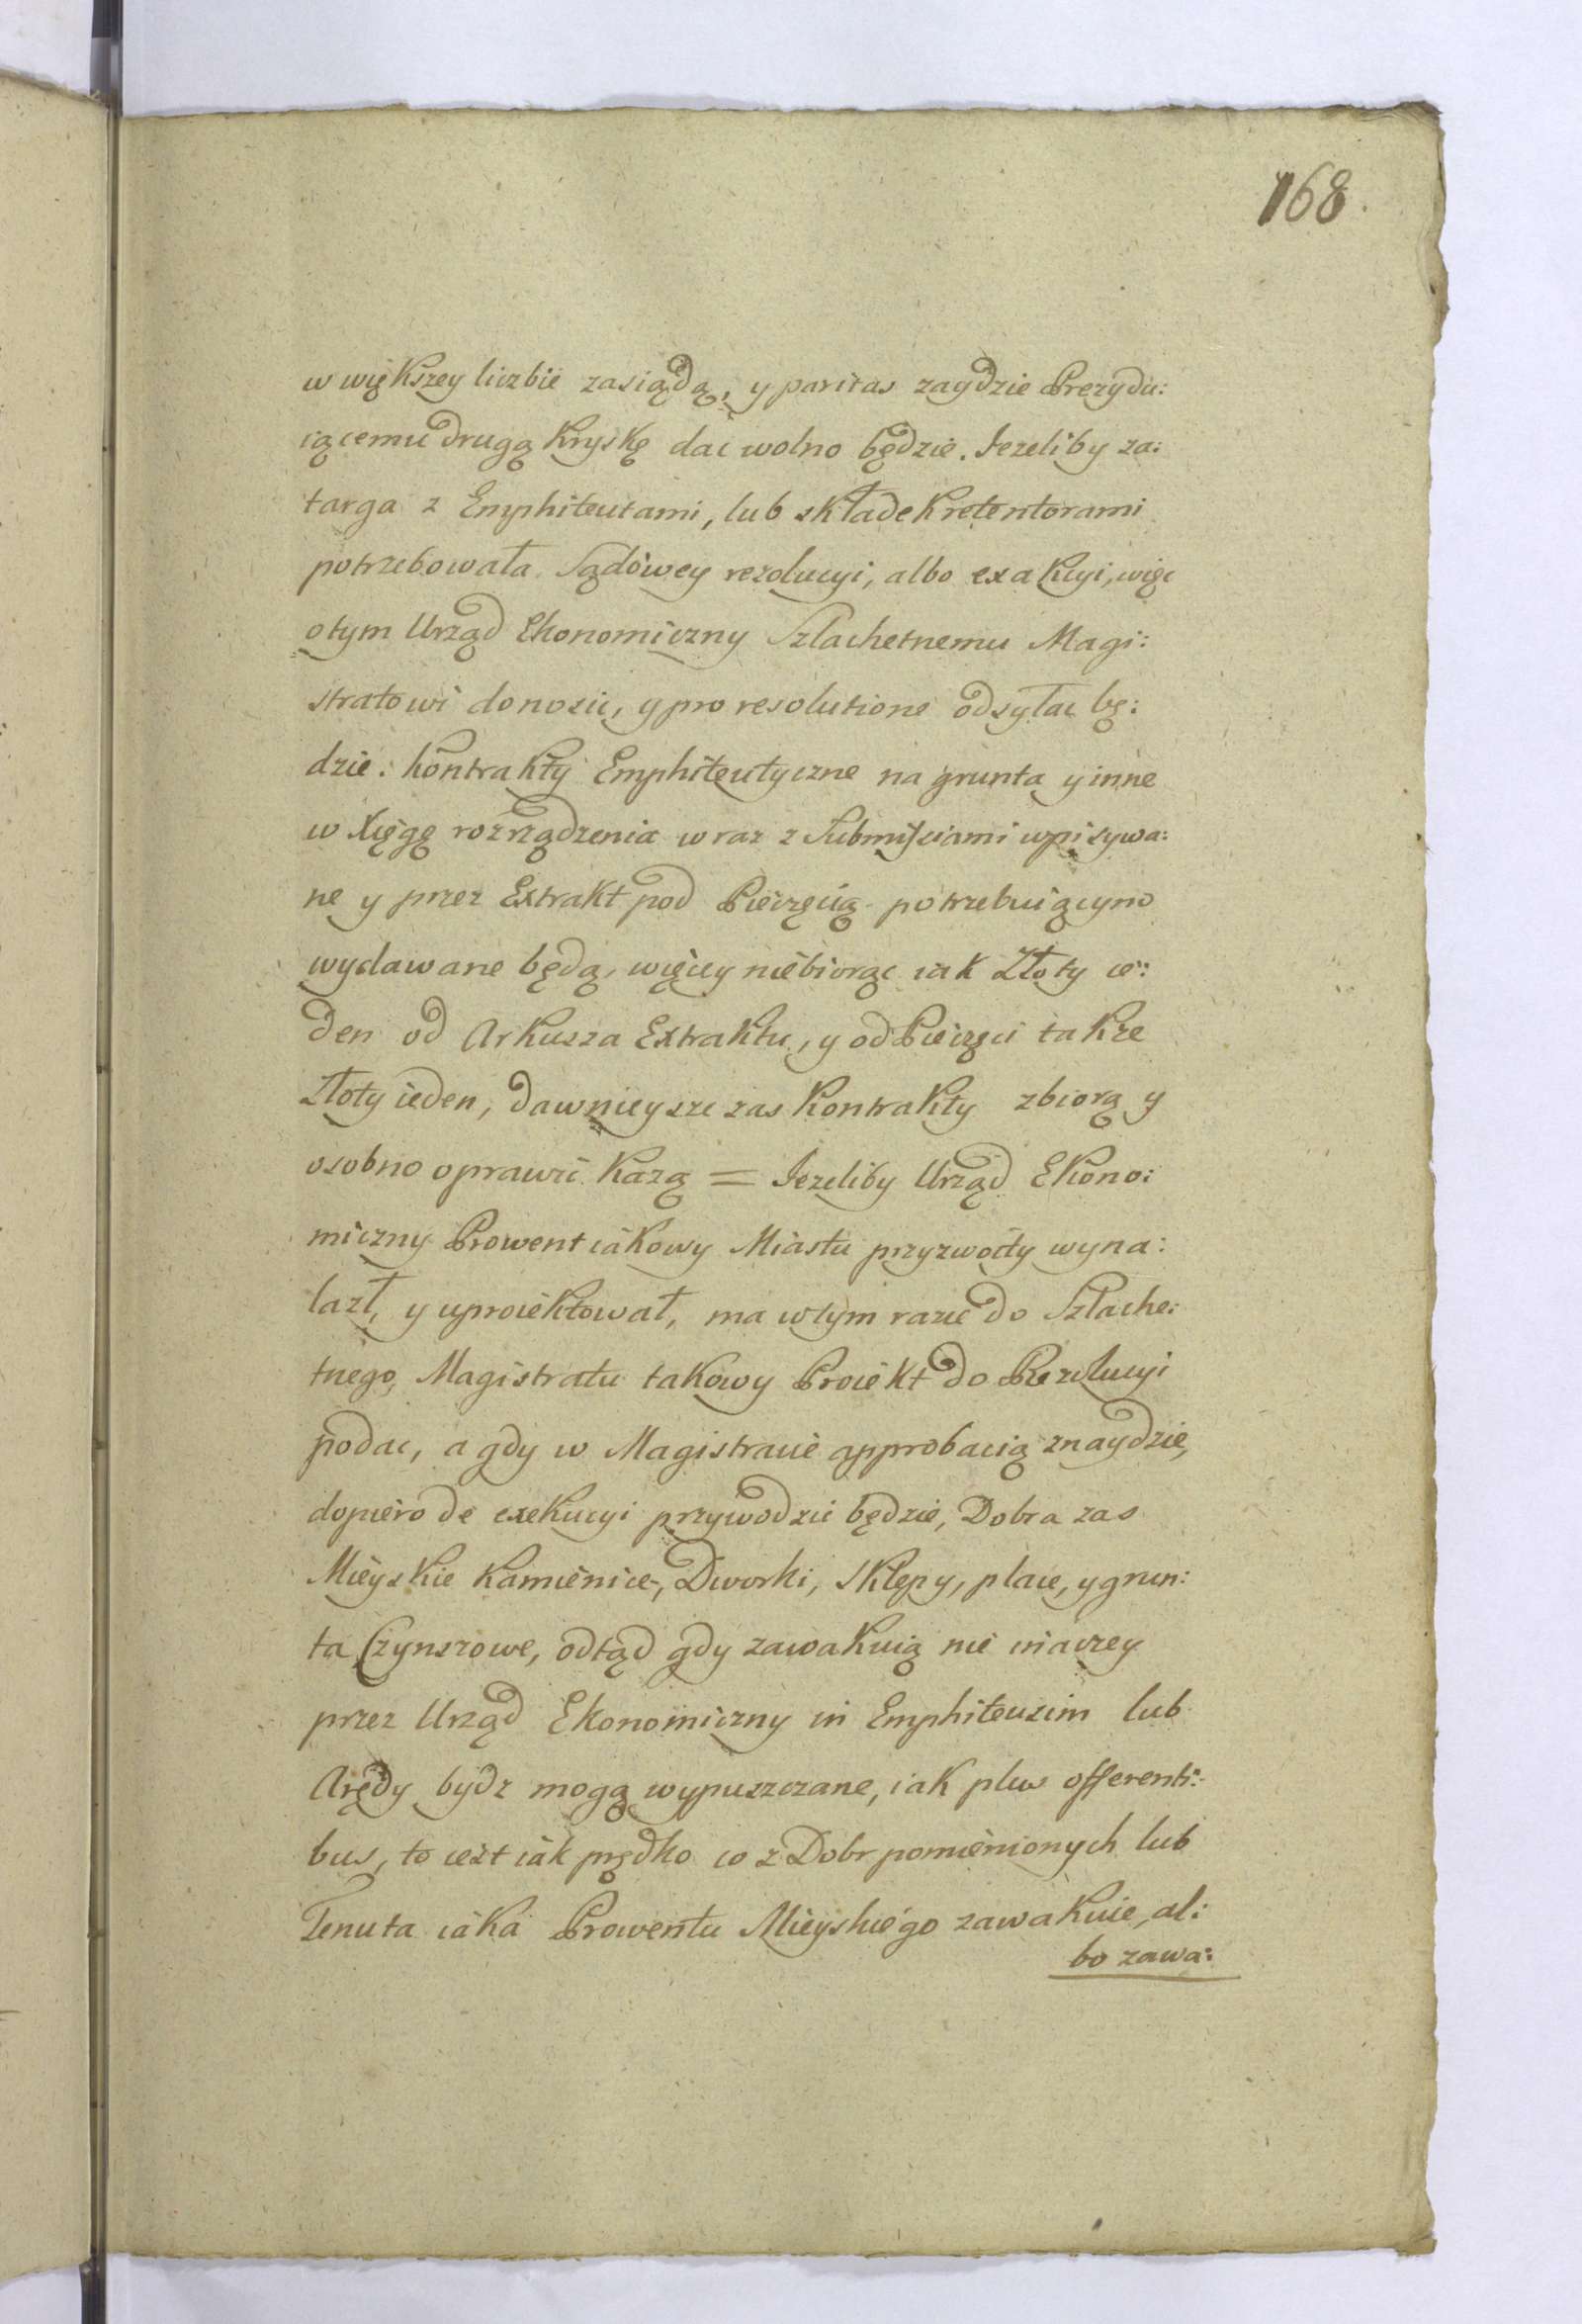 168.
w większey liczbie zasiądą, y paritas zaydzie Prezydu:
iącemu drugą Kryskę dac wolno będzie. Jezeliby za:
targa z Emphiteutami, lub składek retentorami
potrzebowała Sądowey rezolucyi, albo exakcyi, więc
o tym Urząd Ekonomiczny Szlachetnemu Magi:
stratowi donosic, y pro resolutione odsyłac bę:
dzie. Kontrakty Emphiteutyczne na grunta y inne
w Xięgę rozrządzenia wraz z Submissiami wpisywa:
ne y przez Extrakt pod Pieczęcią potrzebuiącym
wydawane będą, więcey niebiorąc iak Złoty ie:
den od Arkusza Extraktu, y od Pieczęci takze
Złoty ieden, dawnieysze zas Kontrakty zbiorą y
osobno oprawic każą = Jezeliby Urząd Ekono:
miczny Prowent iakowy Miastu przyzwoity wyna:
lazł, y uproiektował, ma w tym razie do Szlache:
tnego Magistratu takowy Proiekt do Rezolucyi
podac, a gdy w Magistracie approbacią znaydzie,
dopiero de exekucyi przywodzic będzie, Dobra zas
Mieyskie Kamienice, Dworki, Sklepy, place, y grun:
ta Czynszowe, odtąd gdy zawakuią nie inaczey
przez Urząd Ekonomiczny in Emphiteusim lub
Arędy bydz mogą wypuszczane, iak plus offerenti:
bus, to iest iak prędko co z Dobr pomienionych lub
Tenuta iaka Prowentu Mieyskiego zawakuie, al:
bo zawa: